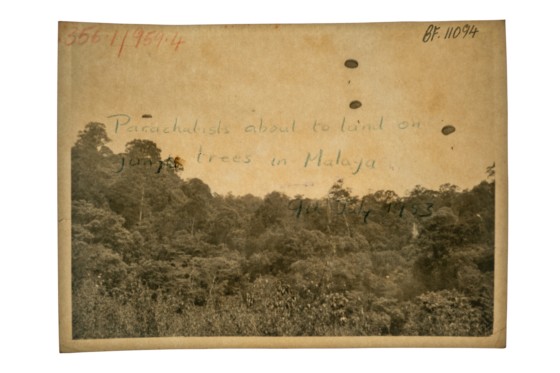 356.1/959.4
BF.11094
Parachutists about to land on
jungle trees in Malaya.
9th July 1953